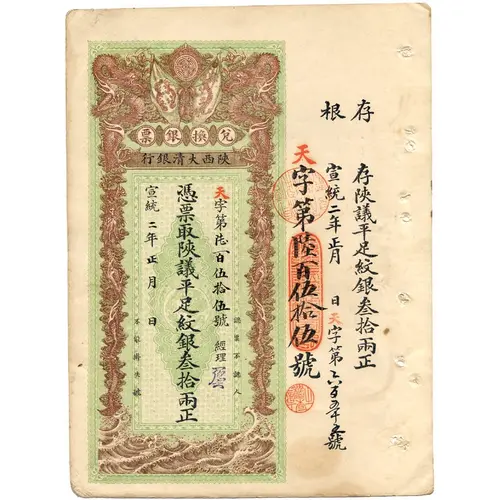 存根
存陝議平足紋銀叁拾兩正
宣統二年正月 日天字第六百五十五號
天字第陸百伍拾伍號
兌換銀票
陝西大清銀行
天字第陸百伍拾伍號 經理
憑票取陝議平足紋銀叁拾兩正
宣統二年正月 日
認票不認人